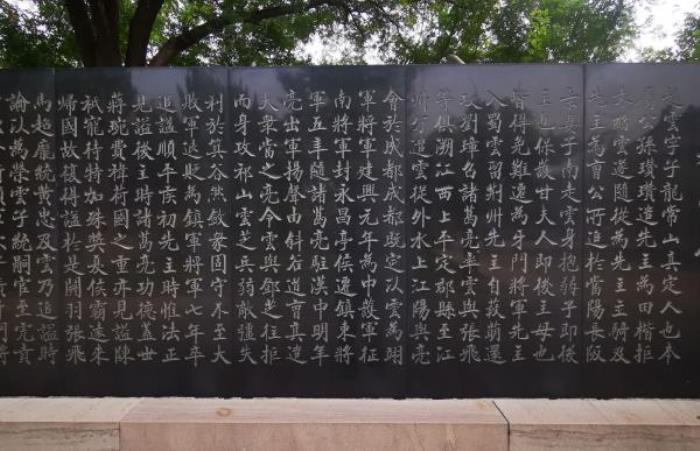 趙雲字子龍常山真定人也本
屬公孫瓚瓚遣先主為田楷拒
雲遂隨從為先主主騎及
先主為曹公所追於當陽長阪
棄妻子南走雲身抱弱子即後
主也保護甘夫人即後主母也
皆得免難遷為牙門將軍先主
入蜀雲留荊州先主自葭萌還
攻劉璋召諸葛亮率雲與張飛
等俱溯江西上平定郡縣至江
州分遣雲從外水上江陽與亮
會於成都成都既定以雲為翊
軍將軍建興元年為中護軍征
南將軍封永昌亭侯遷鎮東將
軍五年隨諸葛亮駐漢中明年
亮出軍揚聲由斜谷道曹真遣
大眾當之亮令雲與鄧芝往拒
而身攻祁山雲芝兵弱敵彊失
利於箕谷然斂眾固守不至大
敗軍退貶為鎮軍將軍七年卒
追諡順平侯初先主時惟法正
見諡後主時諸葛亮功德蓋世
蔣琬費禕荷國之重亦見諡陳
祗寵待特加殊獎夏侯霸遠來
歸國故復得諡於是關羽張飛
馬超龐統黃忠及雲乃追諡時
論以為榮雲子統嗣官至虎賁